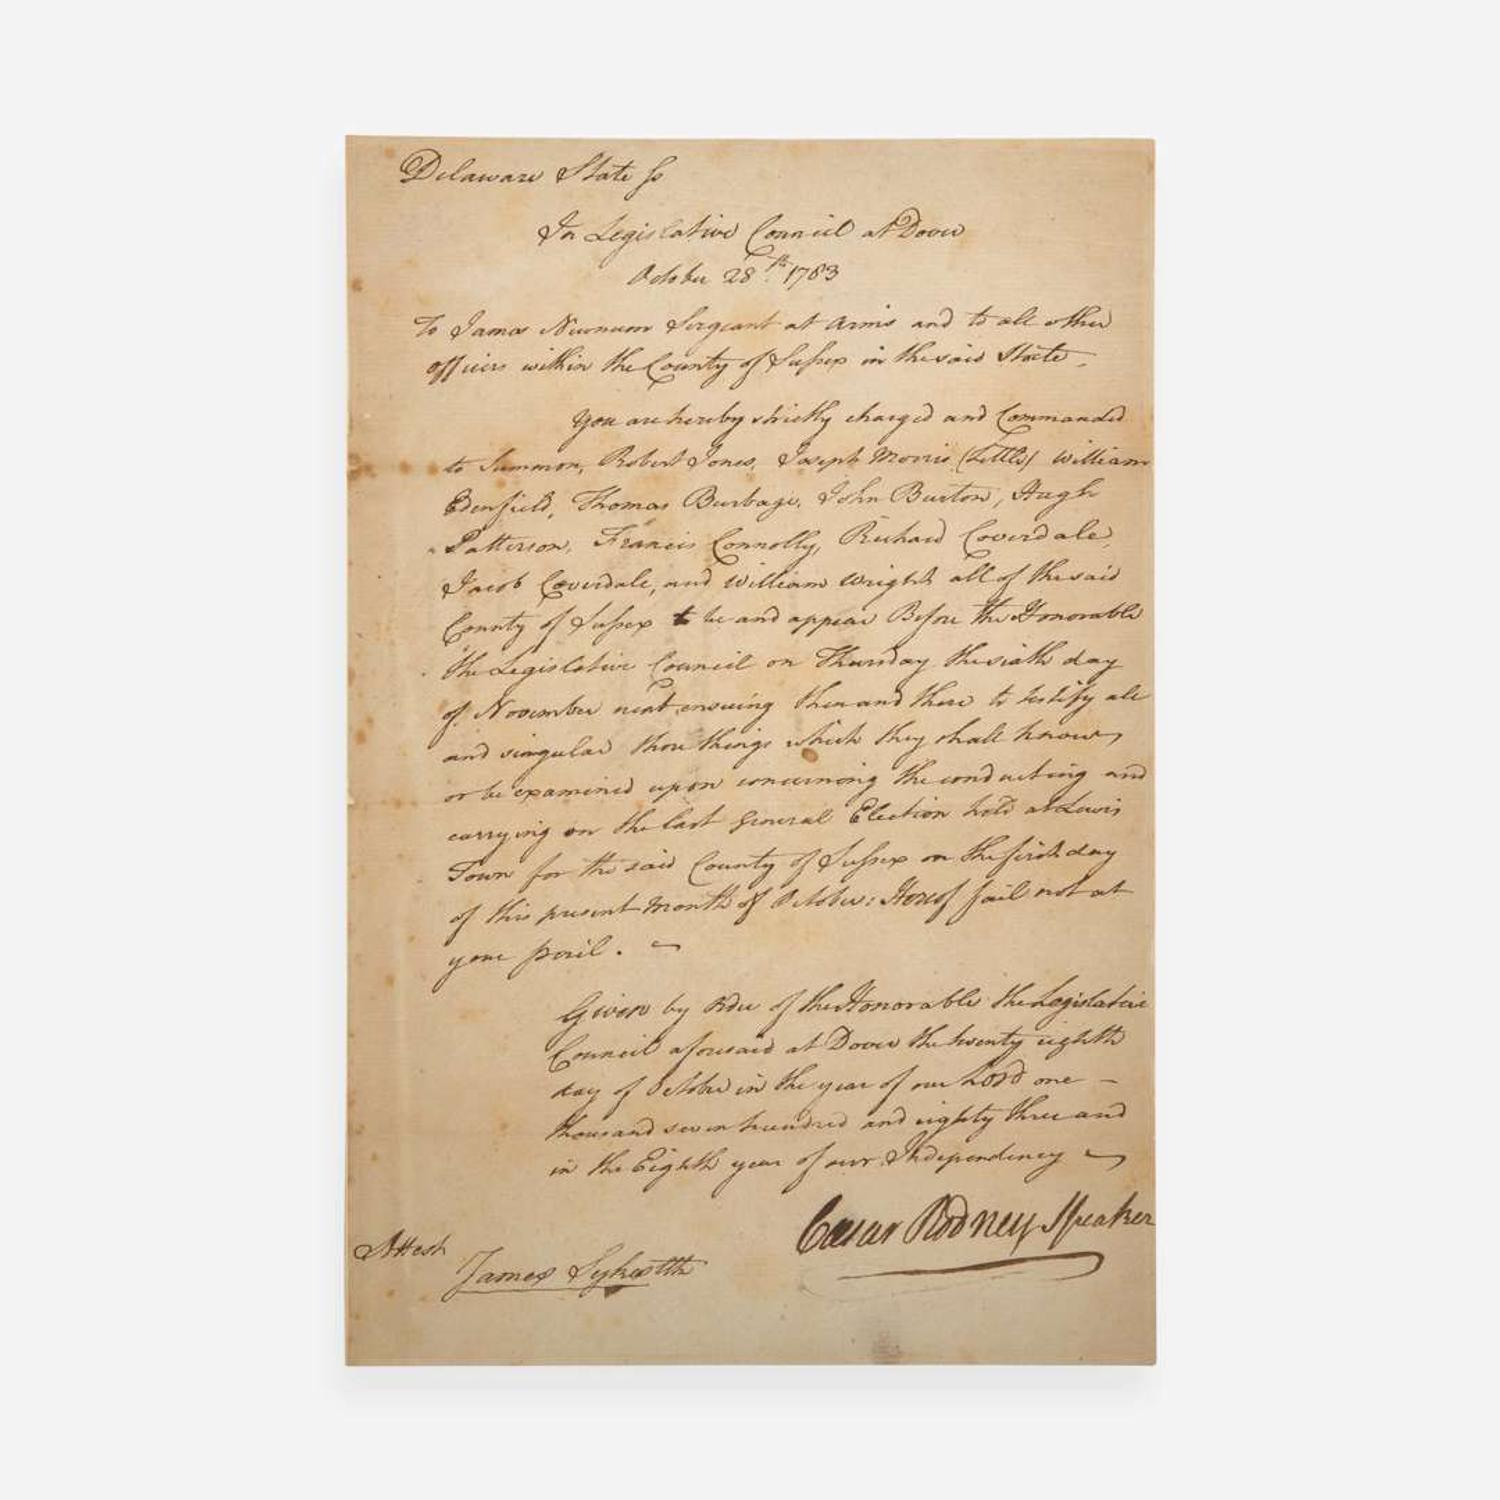 Delaware State ss
In Legislative Council at Dover
October 28th. 1783
To James Newnum Sergeant at Arms and to all other
officers within the County of Sussex in the said State
You are hereby strictly charged and Commanded
to Summon, Robert Jones, Joseph Morris (Little) William
Edenfield, Thomas Burbage, John Burton, Hugh
Patterson, Francis Connolly, Richard Coverdale,
Jacob Coverdale, and William Wright all of the said
County of Sussex to be and appear Before the Honorable
the Legislative Council on Thursday the sixth day
of November next ensuing then and there to testify all
and singular those things which they shall know,
or be examined upon concerning the conducting and
carrying on the last General Election held at Lewis
Town for the said County of Sussex on the first day
of this present Month of October: Hereof fail not at
your peril.
Given by Order of the Honorable the Legislative
Council aforesaid at Dover the twenty eighth
day of October in the year of our Lord one
thousand seven hundred and eighty three and
in the Eighth year of our Independency
Caesar Rodney Speaker
Attest
James Sykes